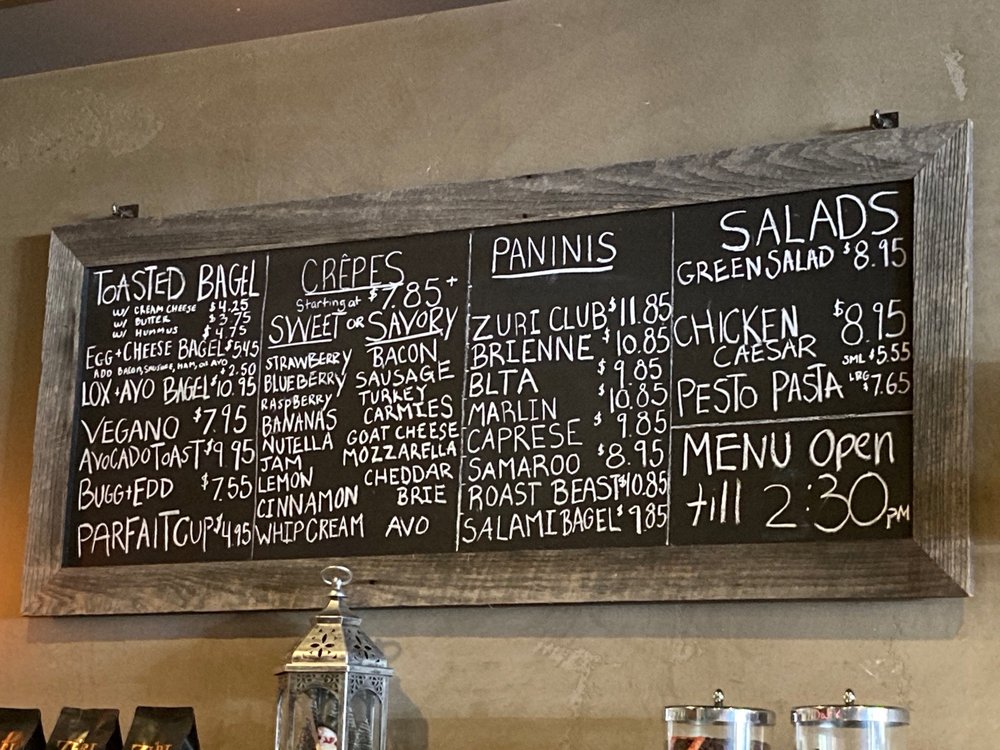 TOASTED BAGEL
W/ CREAM CHEESE $4.25
W/ BUTTER $3.75
W/ HUMMUS $4.75
EGG + CHEESE BAGEL $5.45
ADD BACON, SAUSAGE, HAM, OR AVO $2.50
LOX + AVO BAGEL $10.95
VEGANO $7.95
AVOCADO TOAST $9.95
BUGG + EDD $7.55
PARFAIT CUP $4.95
CRÊPES
Starting at $7.85+
SWEET OR SAVORY
STRAWBERRY BACON
BLUEBERRY SAUSAGE
RASPBERRY TURKEY
BANANAS CARMIES
NUTELLA GOAT CHEESE
JAM MOZZARELLA
LEMON CHEDDAR
CINNAMON BRIE
WHIP CREAM AVO
PANINIS
ZURI CLUB $11.85
BRIENNE $10.85
BLTA $9.85
MARLIN $10.85
CAPRESE $9.85
SAMAROO $8.95
ROAST BEAST $10.85
SALAMI BAGEL $9.85
SALADS
GREEN SALAD $8.95
CHICKEN $8.95
CAESAR
PESTO PASTA SML $5.55
LRG $7.65
MENU Open
till 2:30 PM